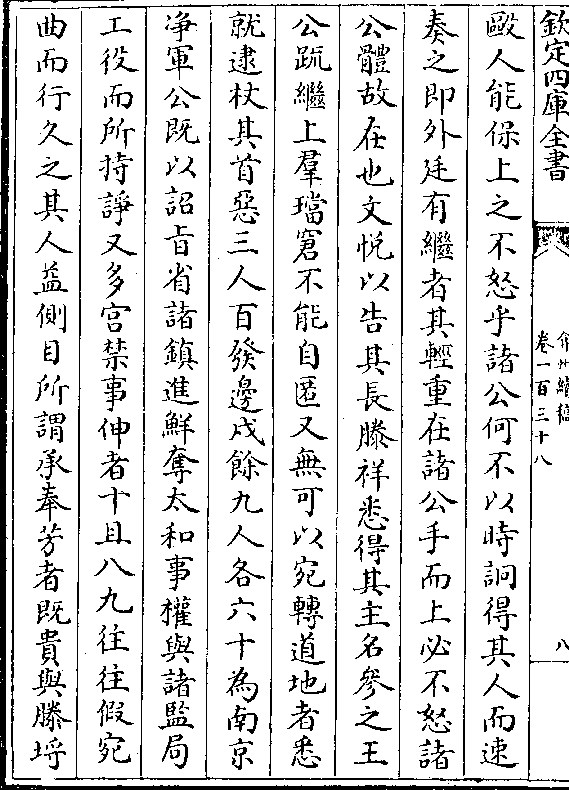 欽定四庫全書
弇州續稿
卷一百三十八
八
毆人能保上之不怒乎諸公何不以時詗得其人而速
奏之即外廷有繼者其輕重在諸公手而上必不怒諸
公體故在也文悦以告其長滕祥悉得其主名參之王
公䟽繼上羣璫窘不能自匿又無可以宛轉道地者悉
就逮杖其首惡三人百發邊戍餘九人各六十為南京
凈軍公既以詔㫖省諸鎮進鮮奪太和事權與諸監局
工役而所持諍又多宫禁事伸者十且八九往往假宛
曲而行久之其人益側目所謂承奉芳者既貴與滕埒